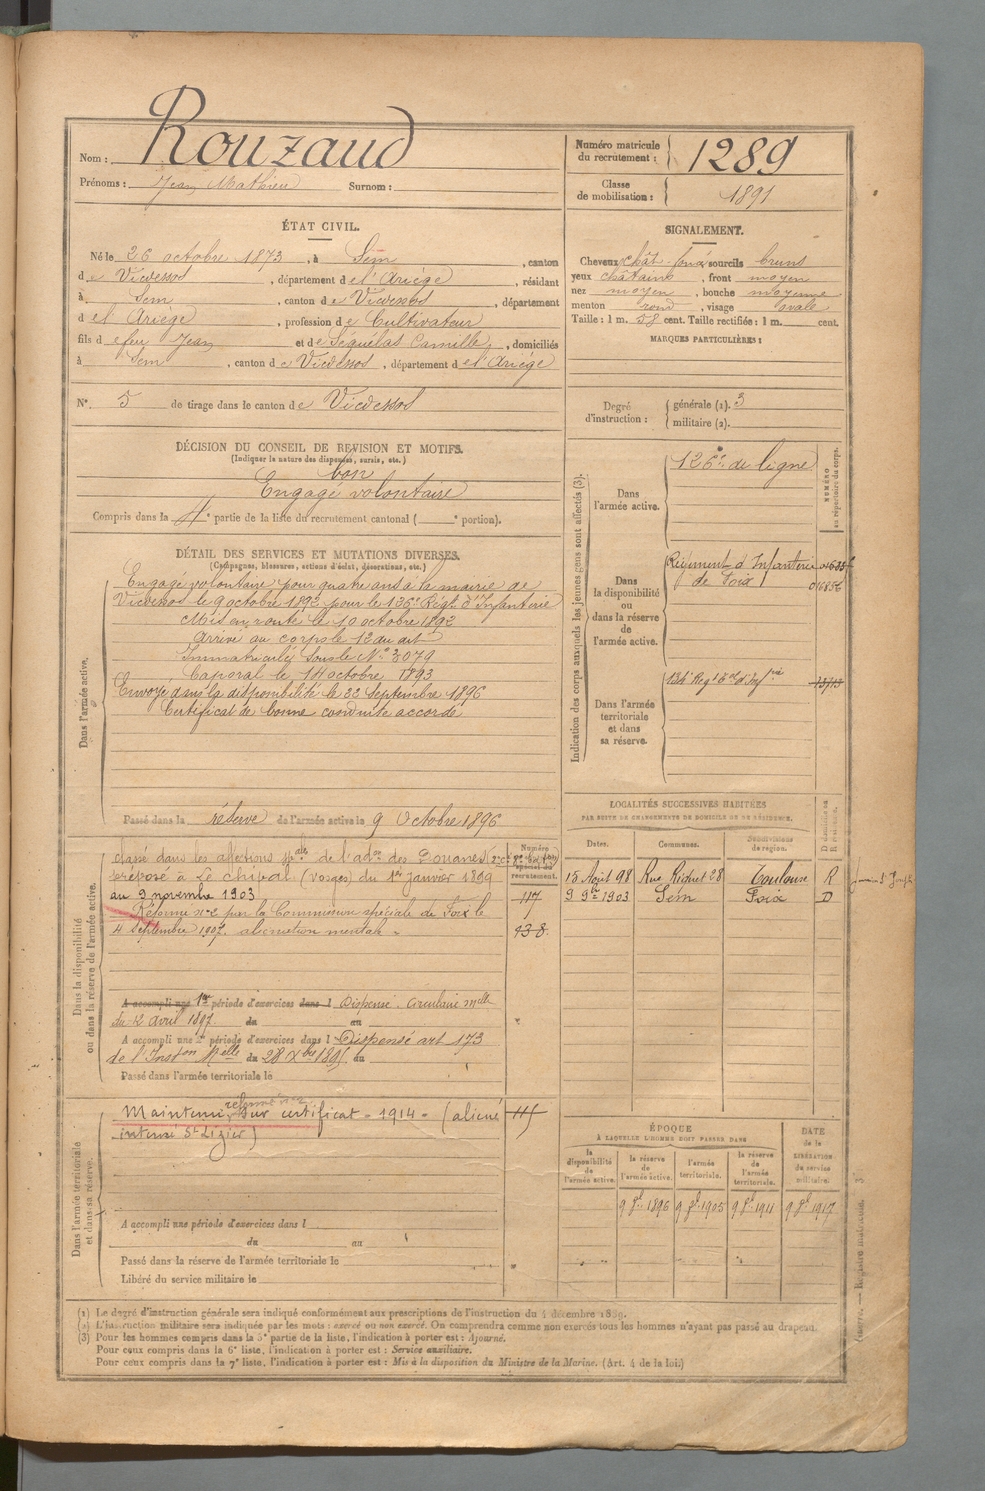 Nom : Rouzaud
Prénoms : Jean Mathieu Surnom :
Numéro matricule du recrutement : 1289
Classe de mobilisation : 1891
ÉTAT CIVIL.
Né le 26 octobre 1873, à Sem, canton
de Vicdessos, département de l'Ariège, résidant
à Sem, canton de Vicdessos, département
d el'Ariège, profession de Cultivateur
fils de feu Jean et de Séquélas Camille, domiciliés
à Sem, canton de Vicdessos, département de l'Ariège
N° 5 de tirage dans le canton de Vicdessos
SIGNALEMENT.
Cheveux chât. foncé sourcils bruns
yeux châtains, front moyen
nez moyen, bouche moyenne
menton rond, visage ovale
Taille : 1 m. 58 cent. Taille rectifiée : 1 m. cent.
MARQUES PARTICULIÈRES :
Degré d'instruction : générale (1). 3
militaire (2).
DÉCISION DU CONSEIL DE REVISION ET MOTIFS.
(Indiquer la nature des dispenses, sursis, etc.)
bon
Engagé volontaire
Compris dans la 4e partie de la liste du recrutement cantonal ( e portion).
DÉTAIL DES SERVICES ET MUTATIONS DIVERSES.
(Campagnes, blessures, actions d'éclat, décorations, etc.)
Dans l'armée active.
Engagé volontaire pour quatre ans à la mairie de
Vicdessos le 9 octobre 1892 pour le 126e Régt d'Infanterie
Mis en route le 10 octobre 1892
Arrivé au corps le 12 du dit
Immatriculé sous le N° 3079
Caporal le 14 octobre 1893
Envoyé dans la disponibilité le 22 Septembre 1896
Certificat de bonne conduite accordé
Passé dans la réserve de l'armée active le 9 Octobre 1896
Indication des corps auxquels les jeunes gens sont affectés (3).
NUMÉRO au répertoire du corps.
Dans l'armée active.
126e de ligne
Dans la disponibilité ou dans la réserve de l'armée active.
Régiment d'Infanterie
de Foix
016856
Dans l'armée territoriale et dans sa réserve.
Dans la disponibilité ou dans la réserve de l'armée active.
classé dans les affections spales de l'adon des Douanes
préposé à Le chipal (Vosges) du 1er Janvier 1899
au 9 novembre 1903
Réformé n° 2 par la Commission spéciale de Foix le
4 Septembre 1907. aliénation mentale
117
938
A accompli une 1re période d'exercices dans l Dispensé. Circulaire Mlle
du 12 Avril 1897. du au
A accompli une 2e période d'exercices dans l Dispensé art 173
de l'Inston Mlle du 28 Xbre 1895 au
Passé dans l'armée territoriale le
LOCALITÉS SUCCESSIVES HABITÉES
PAR SUITE DE CHANGEMENTS DE DOMICILE OU DE RÉSIDENCE.
Dates. Communes. Subdivisions de région.
15 Août 98 Rue Riquet 28 Toulouse R
9 9bre 1903 Sem Foix D
Dans l'armée territoriale et dans sa réserve.
réformé n° 2
Maintenu sur certificat - 1914 - (aliéné
interné St Lizier)
A accompli une période d'exercices dans l
du au
Passé dans la réserve de l'armée territoriale le
Libéré du service militaire le
ÉPOQUE
À LAQUELLE L'HOMME DOIT PASSER DANS
DATE de la LIBÉRATION du service militaire.
la disponibilité de l'armée active.
la réserve de l'armée active.
l'armée territoriale.
la réserve de l'armée territoriale.
9 8bre 1896 9 8bre 1905 9 8bre 1911 9 8bre 1917
(1) Le degré d'instruction générale sera indiqué conformément aux prescriptions de l'instruction du 4 décembre 1889.
(2) L'instruction militaire sera indiquée par les mots : exercé ou non exercé. On comprendra comme non exercés tous les hommes n'ayant pas passé au drapeau.
(3) Pour les hommes compris dans la 5e partie de la liste, l'indication à porter est : Ajourné.
Pour ceux compris dans la 6e liste, l'indication à porter est : Service auxiliaire.
Pour ceux compris dans la 7e liste, l'indication à porter est : Mis à la disposition du Ministre de la Marine. (Art. 4 de la loi.)